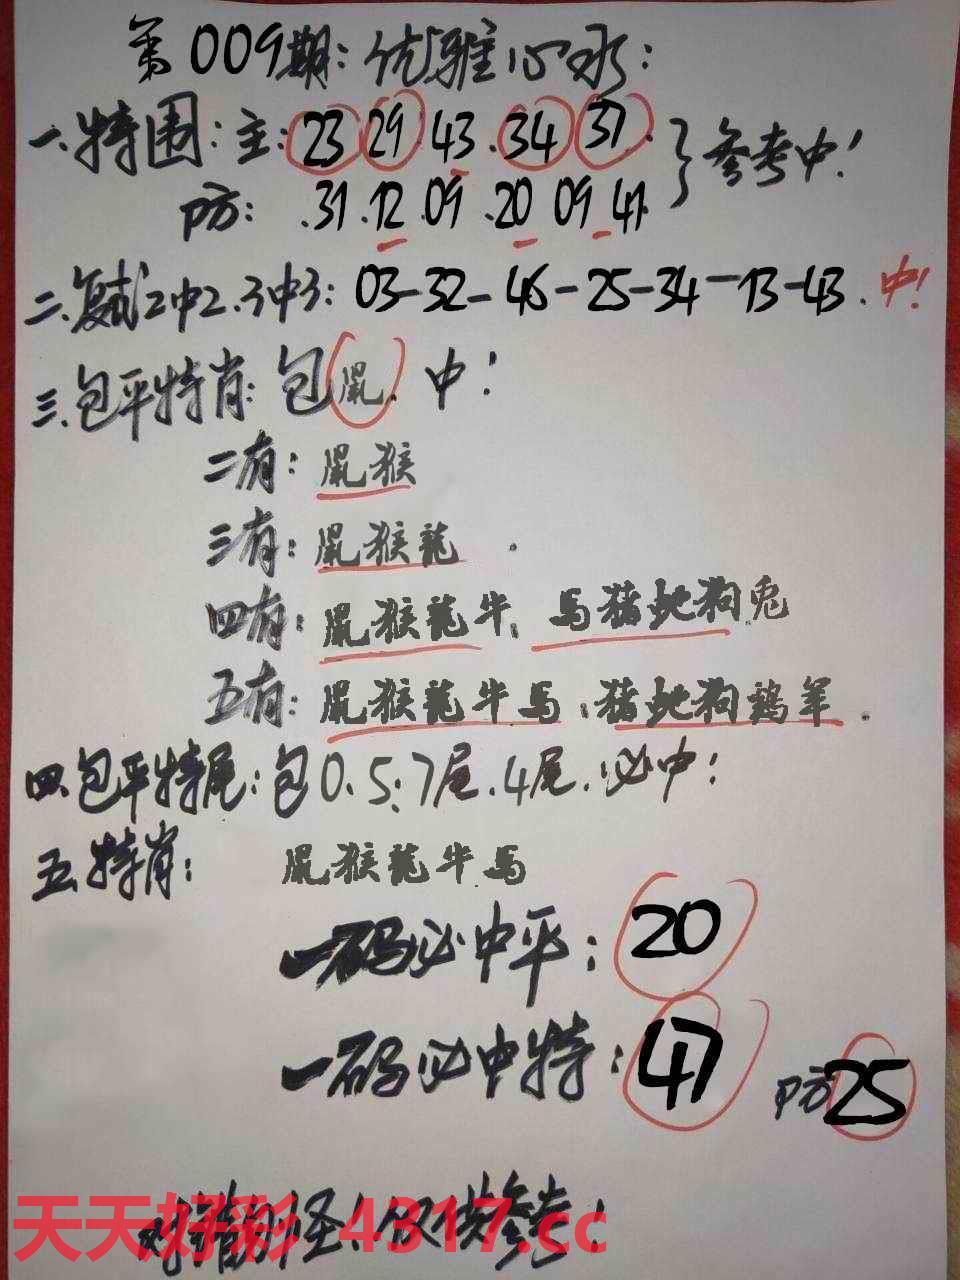 第009期:优雅心水:
一.特围:主:23 29 43.34 37.}参考中!
防:.31.12.09.20 09 41.
二.复式2中2.3中3:03-32-46-25-34-13-43.中!
三.包平特肖:包鼠.中!
二有:鼠猴
三有:鼠猴龍.
四有:鼠猴龍牛.馬猪蛇狗兔
五有:鼠猴龍牛馬.猪蛇狗鷄羊.
四.包平特尾:包0.5.7尾.4尾.必中!
五.特肖:鼠猴龍牛馬
一码必中平:20
一码必中特:47 防25
对错勿怪!仅供参考!
天天好彩 4317.cc